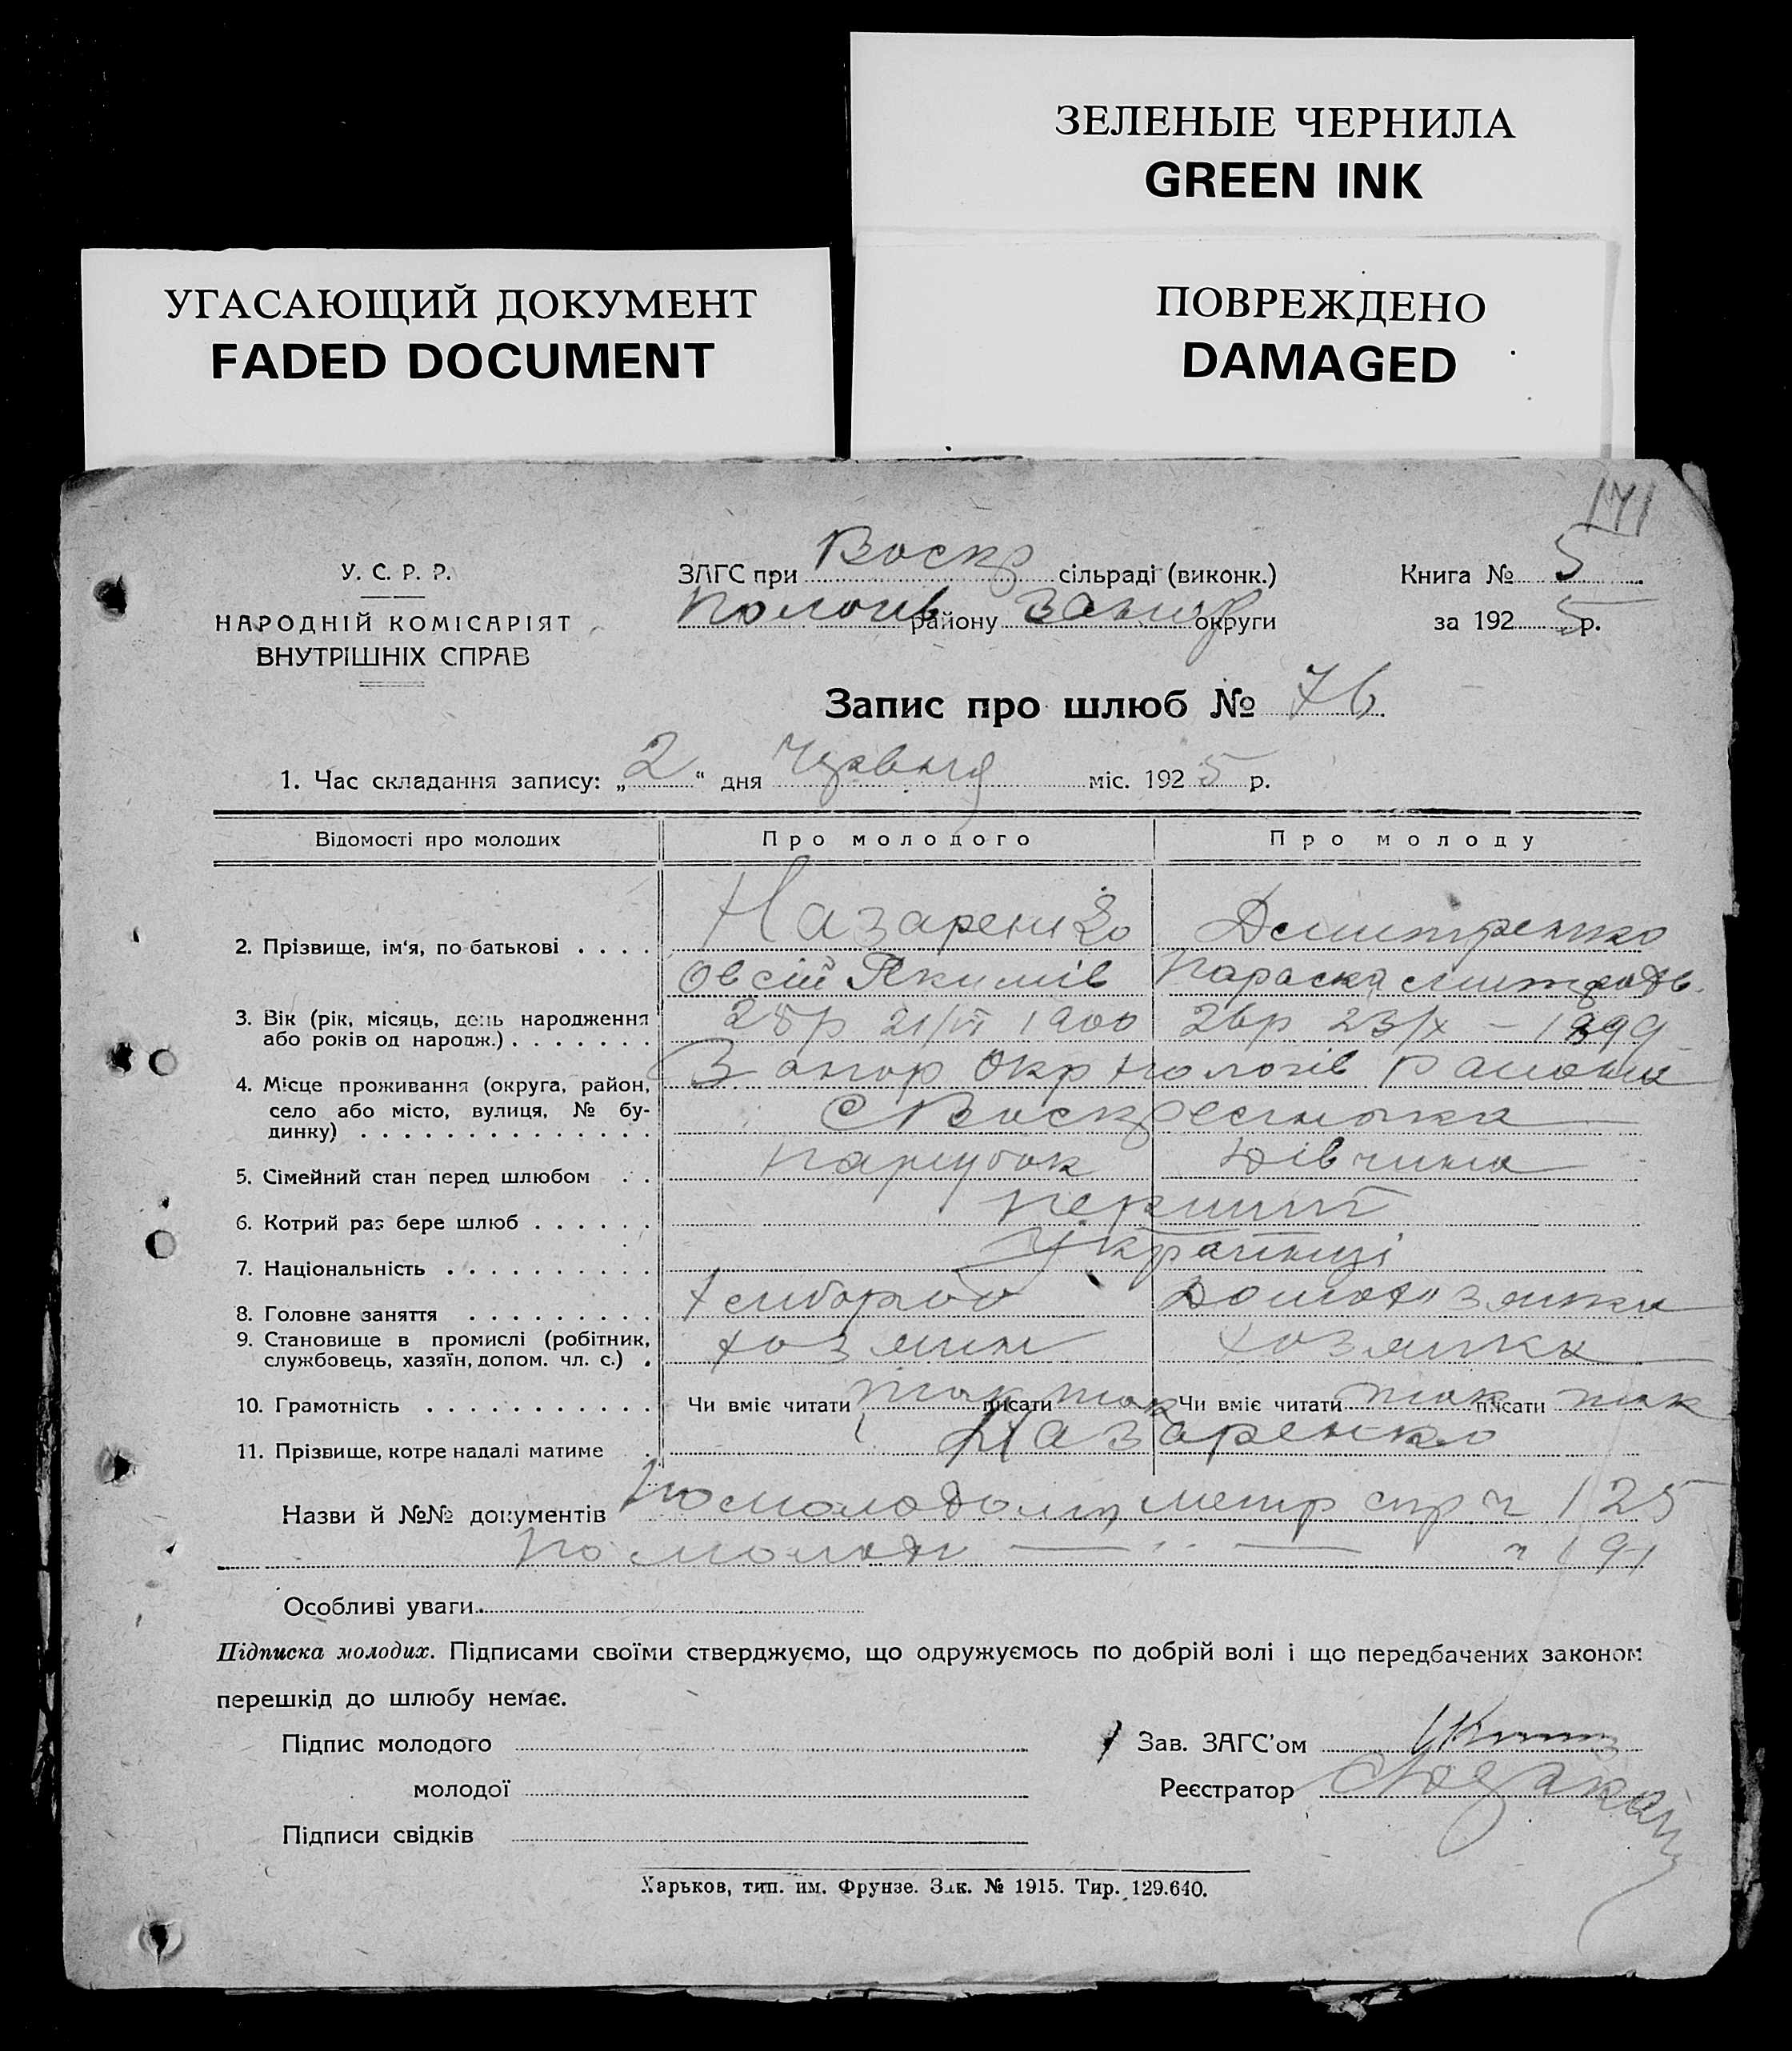 ЗЕЛЕНЫЕ ЧЕРНИЛА
GREEN INK
УГАСАЮЩИЙ ДОКУМЕНТ
FADED DOCUMENT
ПОВРЕЖДЕНО
DAMAGED
171
У. С. Р. Р.
НАРОДНІЙ КОМІСАРІЯТ
ВНУТРІШНІХ СПРАВ
ЗАГС при Воскр сільраді (виконк.)
Пологів району Запор округи
Книга № 5
за 1925 р.
Запис про шлюб № 76
1. Час складання запису: „2“ дня Червня міс. 1925 р.
Відомості про молодих Про молодого Про молоду
2. Прізвище, ім'я, по-батькові . . . . Назаренко Дмитренко
Овсій Якимів Параска Дмитров.
3. Вік (рік, місяць, день народження або років од народж.) . . . . . . . 25р 21/VI 1900 26р 23/X – 1899
4. Місце проживання (округа, район, село або місто, вулиця, № будинку) . . . . . . . . . . . . . . Запор Окр Пологів Района
с Воскресенка
5. Сімейний стан перед шлюбом . . парубок дівчина
6. Котрий раз бере шлюб . . . . . . перший
7. Національність . . . . . . . . . . Українці
8. Головне заняття . . . . . . . . . Хлібороб Домохозяйка
9. Становище в промислі (робітник, службовець, хазяїн, допом. чл. с.) . хозяин хозяйка
10. Грамотність . . . . . . . . . . . Чи вміє читати так писати так Чи вміє читати так писати так
11. Прізвище, котре надалі матиме . Назаренко
Назви й №№ документів По молодому метр спр ч 125
По молодій — ·· — ч 191
Особливі уваги
Підписка молодих. Підписами своїми стверджуємо, що одружуємось по добрій волі і що передбачених законом
перешкід до шлюбу немає.
Підпис молодого
Зав. ЗАГС'ом
молодої
Реєстратор
Підписи свідків
Харьков, тип. им. Фрунзе. Зак. № 1915. Тир. 129.640.